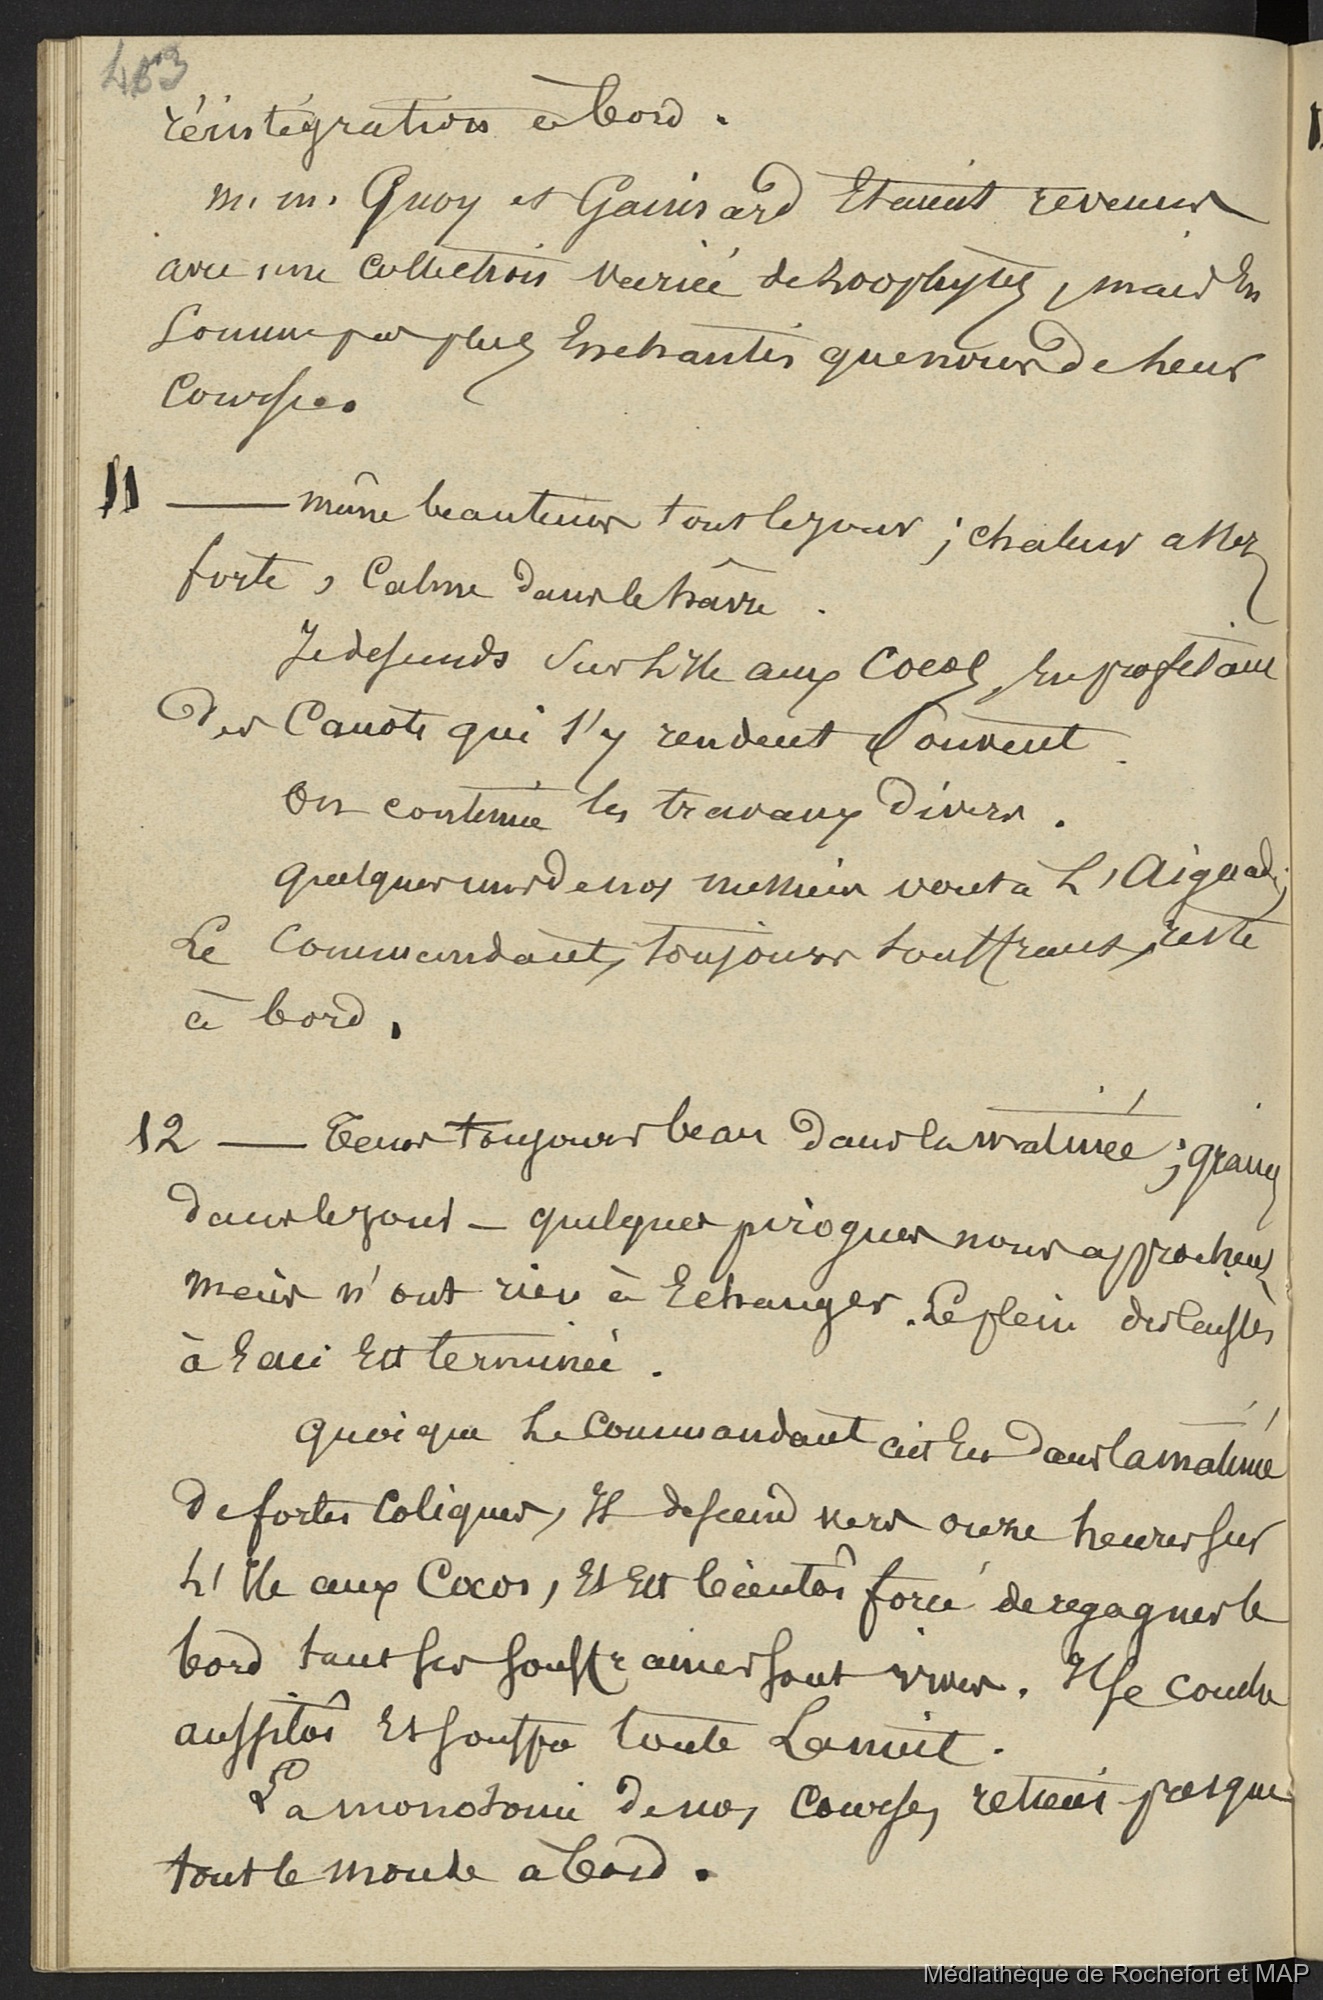 483
réintégration à bord.
m. m. Quoy et Gaimard Etaient revenus
avec une collection variée de zoophytes, mais En
Somme pas plus Enchantés que nous de leurs
Courses.
11 — même beau tems tout le jour ; chaleur assez
forte, Calme dans le hâvre.
Je descends Sur L'Ile aux Cocos, En profitant
des Canots qui s'y rendent Souvent.
On continue les travaux divers.
quelques uns de nos messieurs vont à L'Aiguade;
Le Commandant, toujours souffrant, reste
à bord.
12 — Tems toujours beau dans la matinée ; grains
dans le jour — quelques pirogues nous approchent
mais n'ont rien à Echanger. Le plein des caisses
à Eau Est terminée.
quoique Le Commandant ait Eu dans la matinée
de fortes Coliques, Il descend vers onze heures sur
L'Ile aux Cocos, Et Est bientôt forcé de regagner le
bord tant ses souffrances sont vives. Il se couche
aussitôt Et souffre toute La nuit.
La monotonie de nos Courses, retient presque
tout le monde à bord.
Médiathèque de Rochefort et MAP